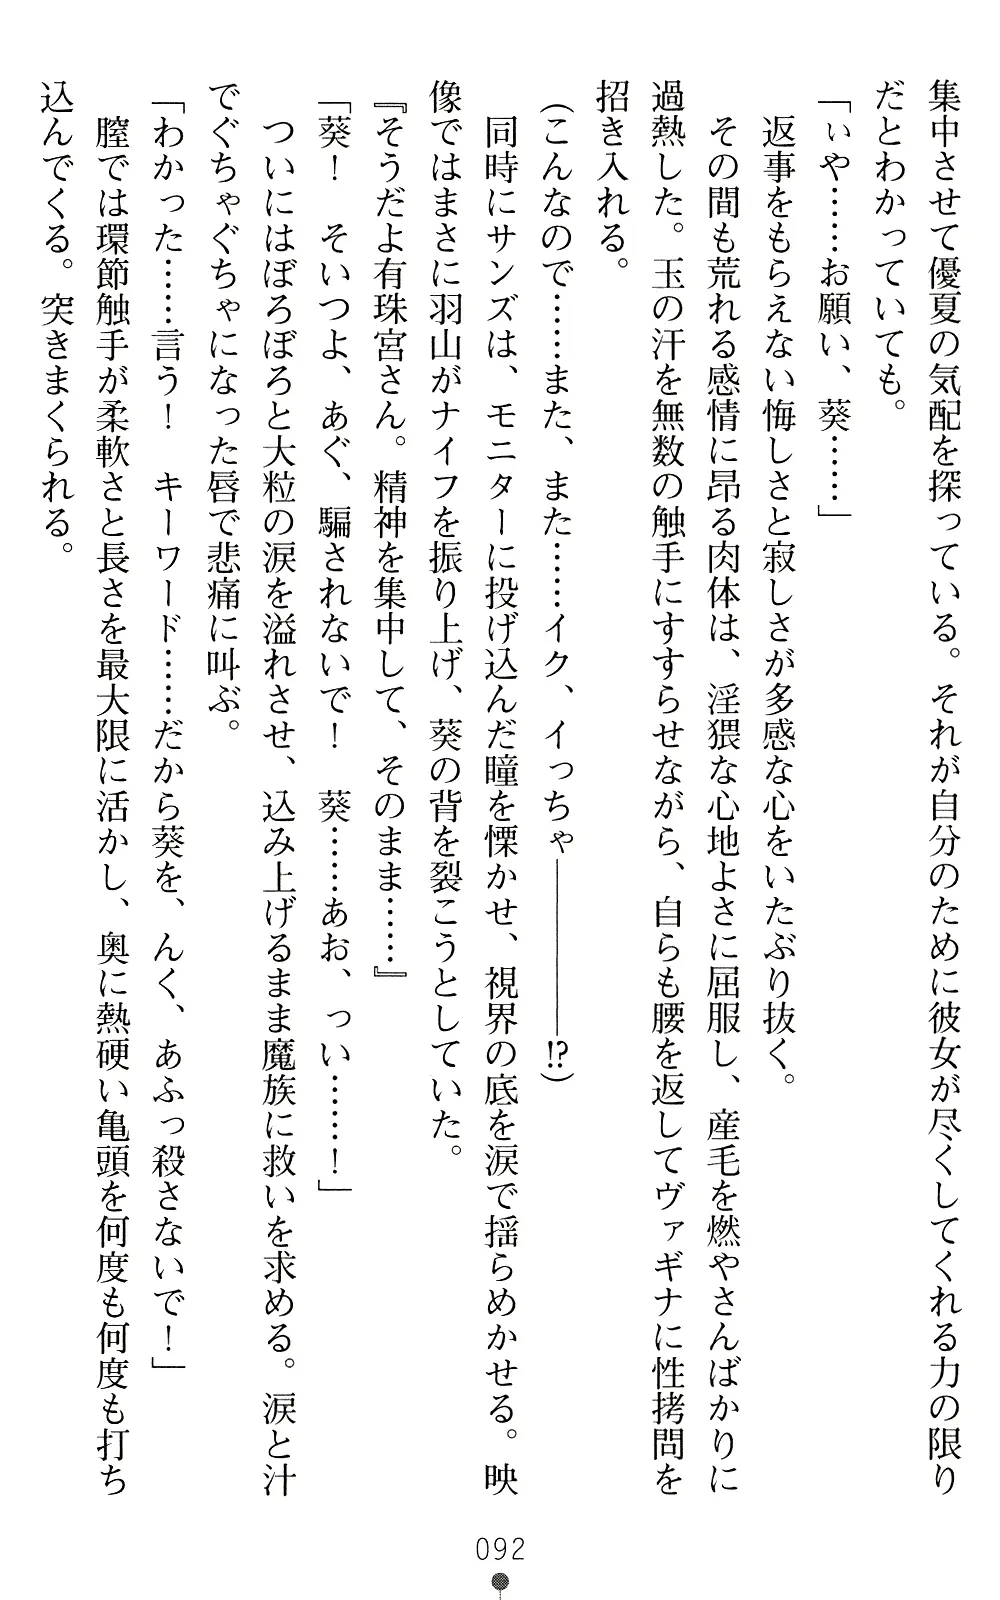 集中させて優夏の気配を探っている。それが自分のために彼女が尽くしてくれる力の限り
だとわかっていても。
「ぃや……お願い、葵……」
返事をもらえない悔しさと寂しさが多感な心をいたぶり抜く。
その間も荒れる感情に昂る肉体は、淫猥な心地よさに屈服し、産毛を燃やさんばかりに
過熱した。玉の汗を無数の触手にすすらせながら、自らも腰を返してヴァギナに性拷問を
招き入れる。
（こんなので……また、また……イク、イっちゃ――――!?）
同時にサンズは、モニターに投げ込んだ瞳を慄かせ、視界の底を涙で揺らめかせる。映
像ではまさに羽山がナイフを振り上げ、葵の背を裂こうとしていた。
『そうだよ有珠宮さん。精神を集中して、そのまま……』
「葵！　そいつよ、あぐ、騙されないで！　葵……あお、っい……！」
ついにはぼろぼろと大粒の涙を溢れさせ、込み上げるまま魔族に救いを求める。涙と汁
でぐちゃぐちゃになった唇で悲痛に叫ぶ。
「わかった……言う！　キーワード……だから葵を、んく、あふっ殺さないで！」
膣では環節触手が柔軟さと長さを最大限に活かし、奥に熱硬い亀頭を何度も何度も打ち
込んでくる。突きまくられる。
092